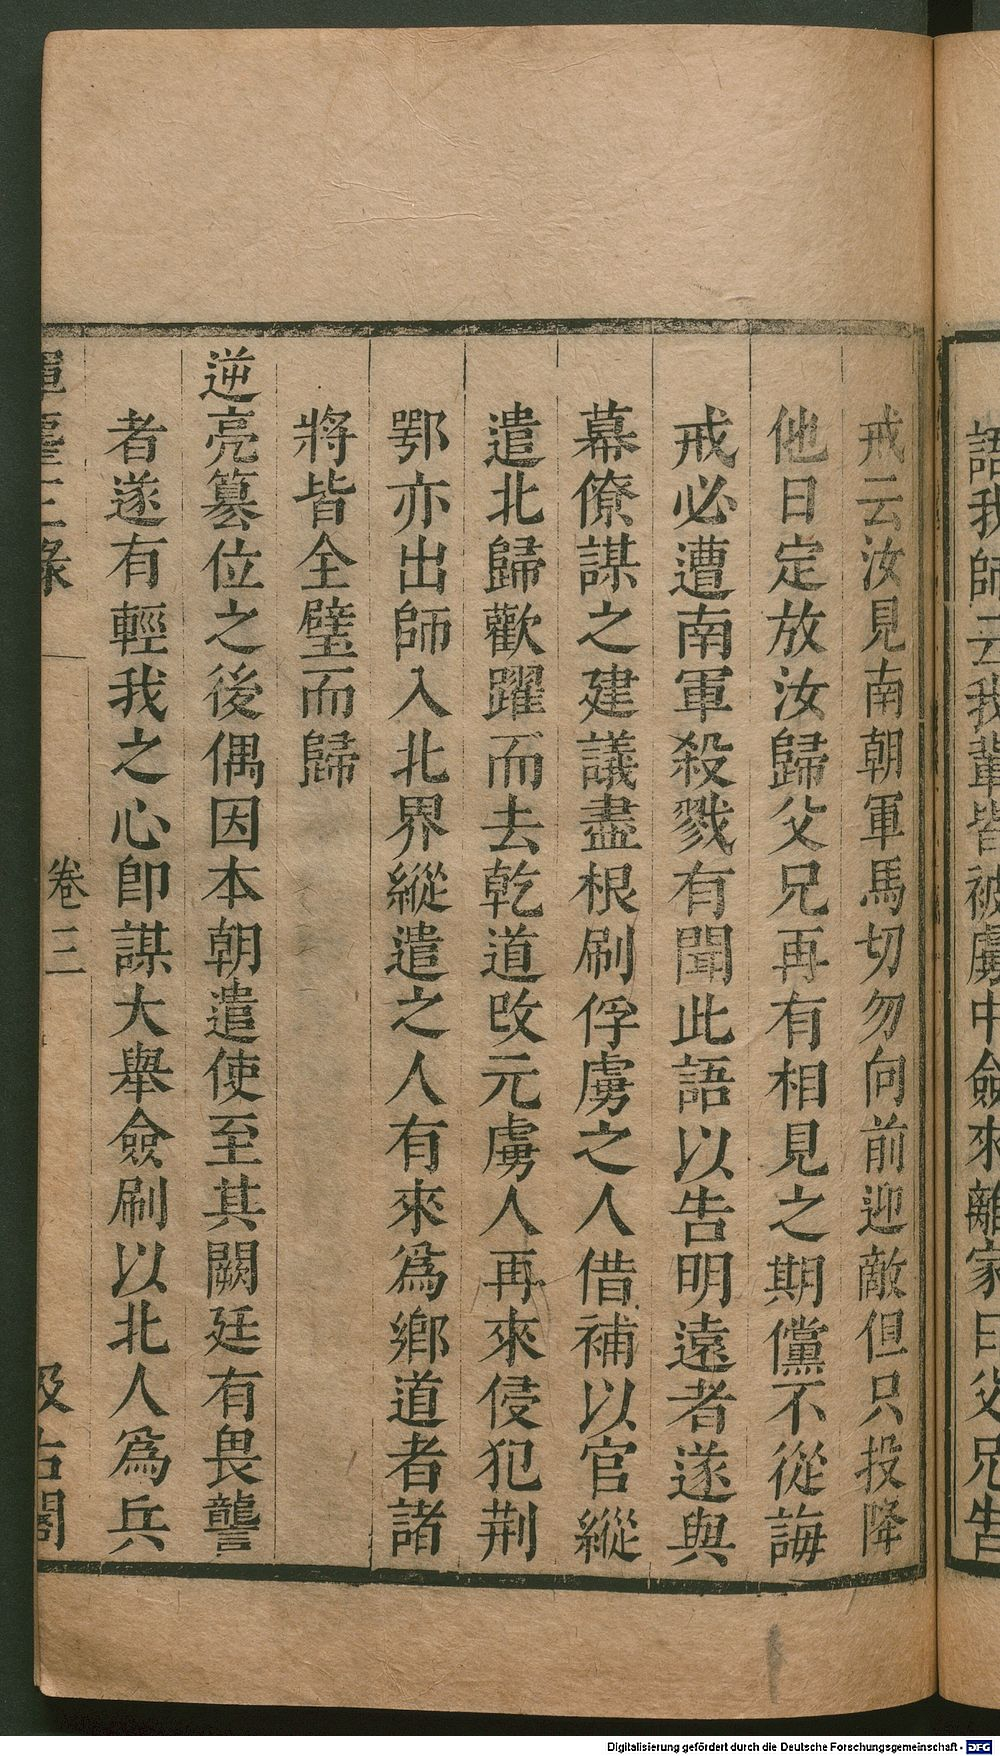 語我師云我輩皆被虜中僉來離家日父兄告
戒云汝見南朝軍馬切勿向前迎敵但只投降
他日定放汝歸父兄再有相見之期儻不從誨
戒必遭南軍殺戮有聞此語以告明遠者遂與
幕僚謀之建議盡根刷俘虜之人借補以官縱
遣北歸歡躍而去乾道改元虜人再來侵犯荆
鄂亦出師入北界縱遣之人有來爲鄉道者諸
將皆全璧而歸
逆亮篡位之後偶因本朝遣使至其闕廷有畏讋
者遂有輕我之心卽謀大舉僉刷以北人爲兵
揮麈三錄 卷三 汲古閣
Digitalisierung gefördert durch die Deutsche Forschungsgemeinschaft - DFG